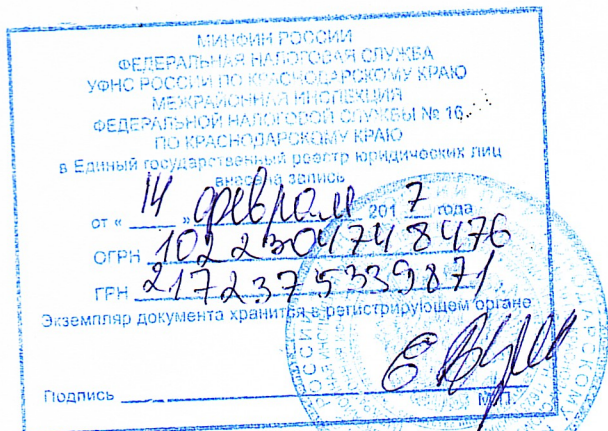 МИНФИН РОССИИ
ФЕДЕРАЛЬНАЯ НАЛОГОВАЯ СЛУЖБА
УФНС РОССИИ ПО КРАСНОДАРСКОМУ КРАЮ
МЕЖРАЙОННАЯ ИНСПЕКЦИЯ
ФЕДЕРАЛЬНОЙ НАЛОГОВОЙ СЛУЖБЫ № 16
ПО КРАСНОДАРСКОМУ КРАЮ
в Единый государственный реестр юридических лиц
внесена запись
от « 14 » февраля 2017 года
ОГРН 1022304748476
ГРН 2172375339871
Экземпляр документа хранится в регистрирующем органе
Подпись
М.П.